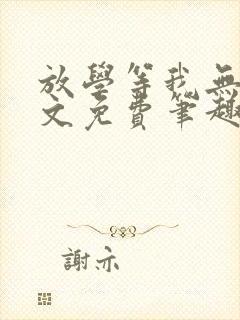 放學等我無
文免費筆趣
謝亦